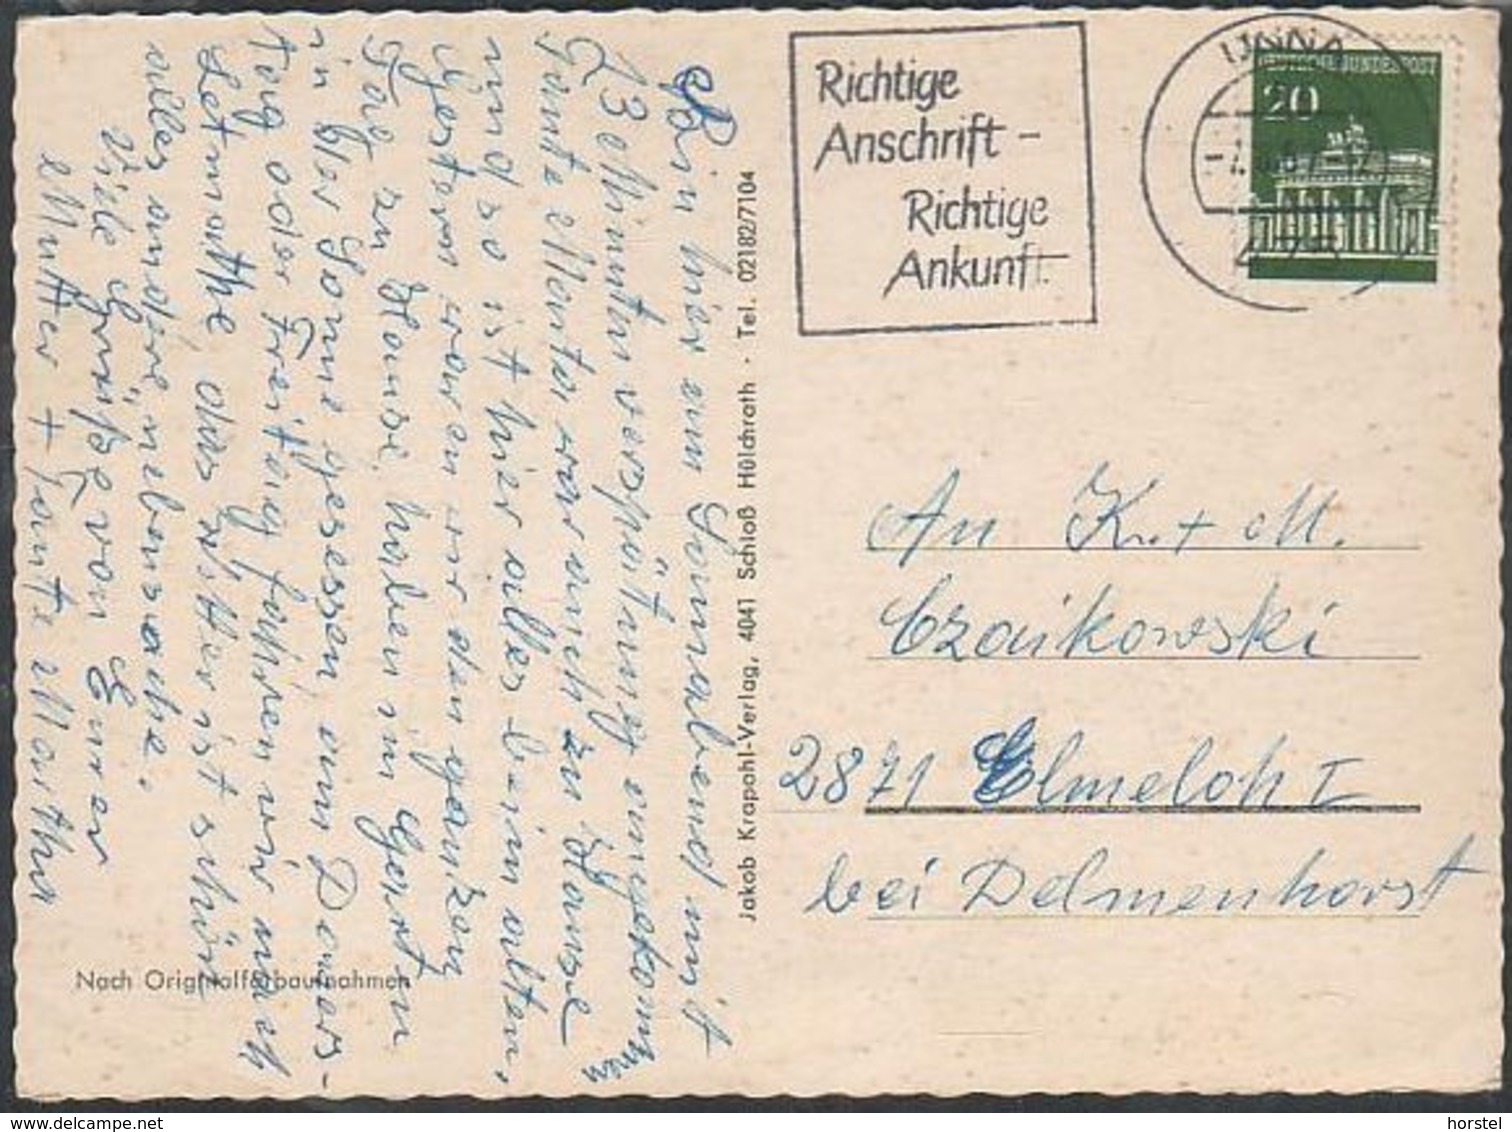 Bin hier am Sonnabend mit
23 Minuten verspätung angekommen
Tante Marta war auch zu Hause
und so ist hier alles beim alten,
Gestern waren wir den ganzen
Tag zu Hause, haben im Garten
in der Sonne gesessen, am Donners-
tag oder Freitag fahren wir nach
Letmathe, das Wetter ist schön
alles andere "nebensache.
Viele Grüße von Eurer
Mutter + Tante Martha
Nach Originalfarbaufnahmen
Jakob Krapohl-Verlag, 4041 Schloß Hülchrath · Tel. 02182/7104
Richtige
Anschrift –
Richtige
Ankunft.
UNNA
475
DEUTSCHE BUNDESPOST
20
An K. + M.
Czaikowski
2871 Elmeloh I
bei Delmenhorst
horstel
www.delcampe.net